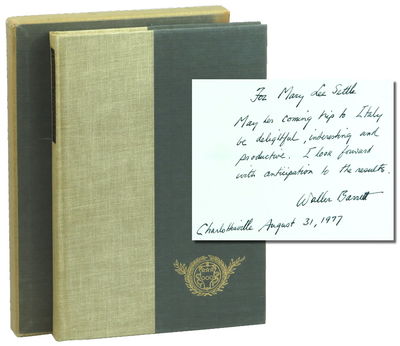 For Mary Lee Settle
May her coming trip to Italy
be delightful, interesting and
productive. I look forward
with anticipation to the results.
Waller Barrett
Charlottesville August 31, 1977